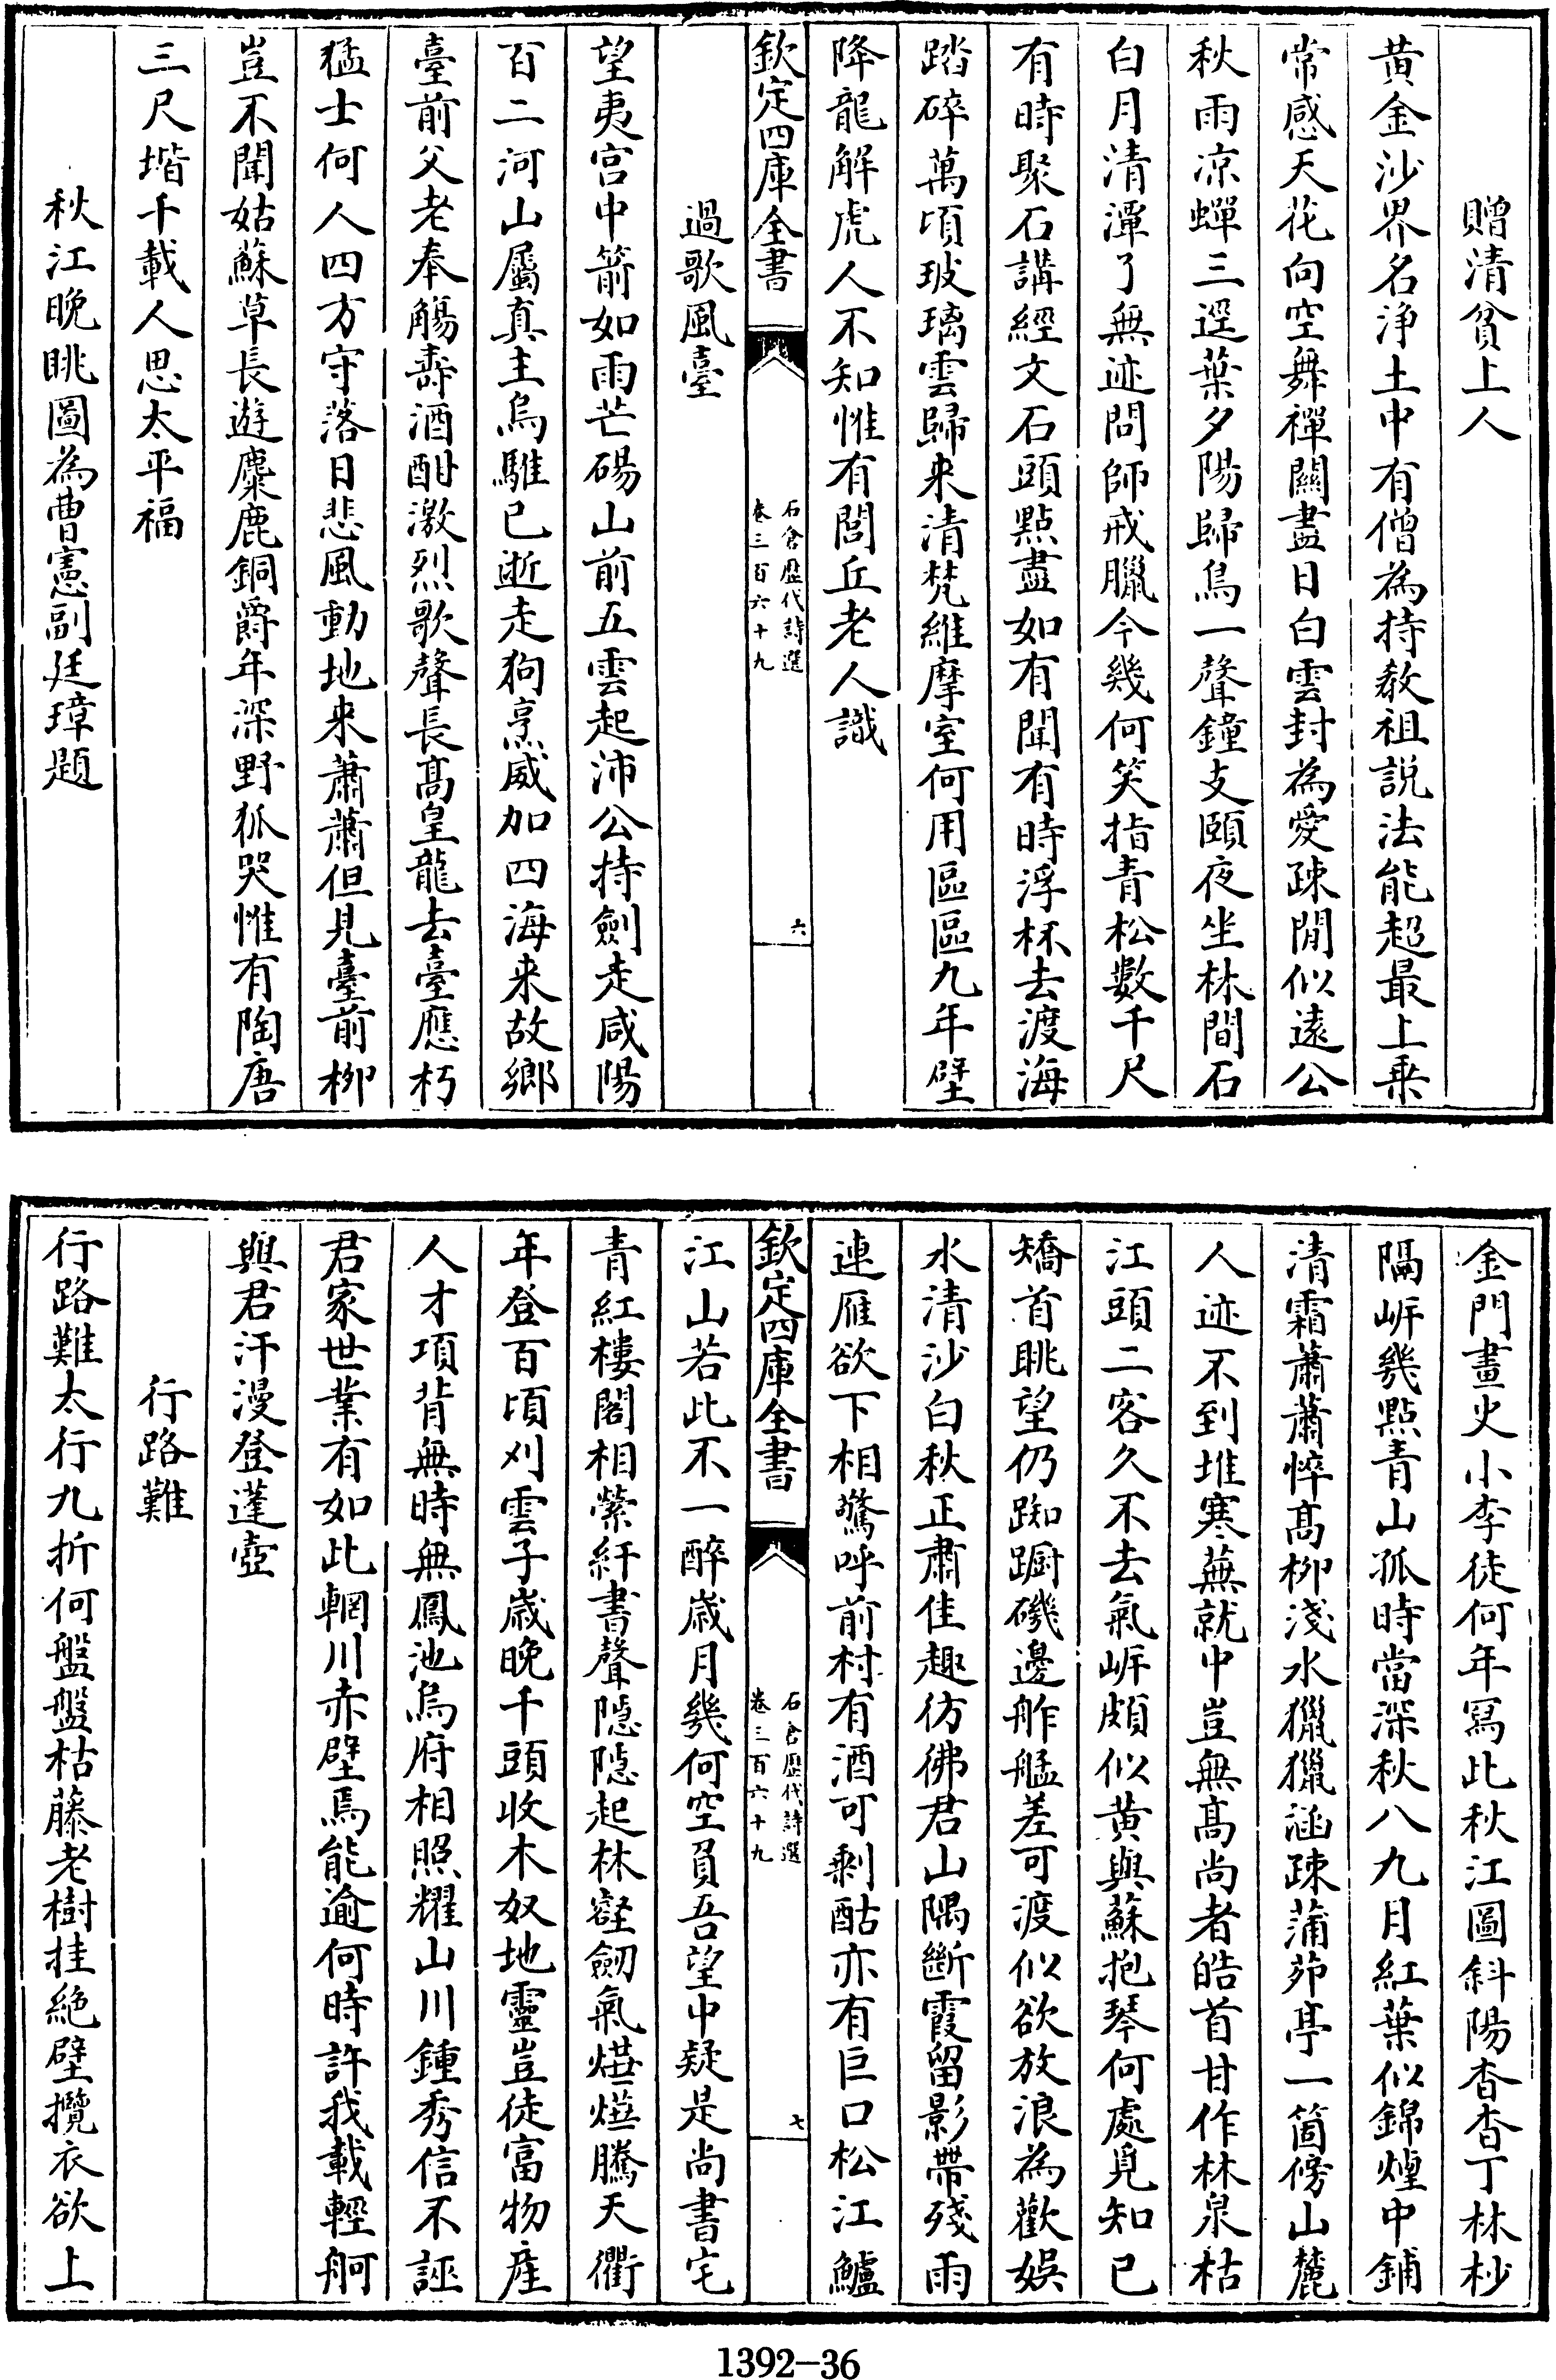 贈清貧上人
黄金沙界名浄土中有僧為持教祖説法能超最上乗
常感天花向空舞禪關盡日白雲封為愛疎閒似遠公
秋雨凉蟬三逕葉夕陽歸鳥一聲鐘支頤夜坐林間石
白月清潭了無迹問師戒臘今幾何笑指青松數千尺
有時聚石講經文石頭點盡如有聞有時浮杯去渡海
踏碎萬頃玻璃雲歸来清梵維摩室何用區區九年壁
降龍解虎人不知惟有閭丘老人識
欽定四庫全書
石倉歴代詩選
卷三百六十九
六
過歌風臺
望夷宫中箭如雨芒碭山前五雲起沛公持劍走咸陽
百二河山屬真主烏騅已逝走狗烹威加四海来故鄉
臺前父老奉觴壽酒酣激烈歌聲長髙皇龍去臺應朽
猛士何人四方守落日悲風動地来蕭蕭但見臺前柳
豈不聞姑蘇草長遊麋鹿銅爵年深野狐哭惟有陶唐
三尺堦千載人思太平福
秋江晚眺圖為曹憲副廷璋題
金門畫史小李徒何年寫此秋江圖斜陽杳杳丁林杪
隔岍幾點青山孤時當深秋八九月紅葉似錦煙中鋪
清霜蕭蕭悴髙柳淺水獵獵涵疎蒲茆亭一箇傍山麓
人迹不到堆寒蕪就中豈無髙尚者皓首甘作林泉枯
江頭二客久不去氣岍頗似黄與蘇抱琴何處覓知已
矯首眺望仍踟蹰磯邊舴艋差可渡似欲放浪為歡娱
水清沙白秋正肅佳趣彷彿君山隅斷霞留影帶殘雨
連雁欲下相驚呼前村有酒可剩酤亦有巨口松江鱸
欽定四庫全書
石倉歴代詩選
卷三百六十九
七
江山若此不一醉歲月幾何空負吾望中疑是尚書宅
青紅樓閣相縈紆書聲隠隠起林壑劒氣爗爗騰天衢
年登百頃刈雲子歲晚千頭收木奴地靈豈徒富物産
人才項背無時無鳳池烏府相照耀山川鍾秀信不誣
君家世業有如此輞川赤壁焉能逾何時許我載輕舸
與君汗漫登蓬壺
行路難
行路難太行九折何盤盤枯藤老樹挂絶壁攬衣欲上
1392-36